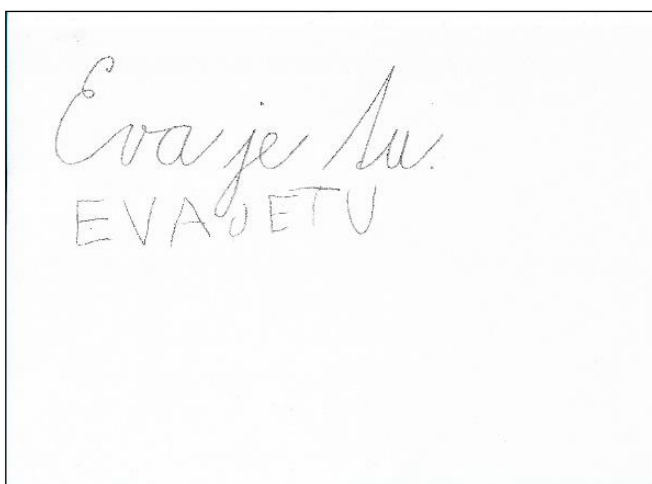 Eva je tu.
EVAJETU